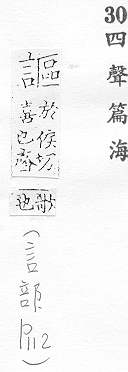 30 四聲篇海
謳 於侯切
喜也齊
歌
也
(言部 P112)